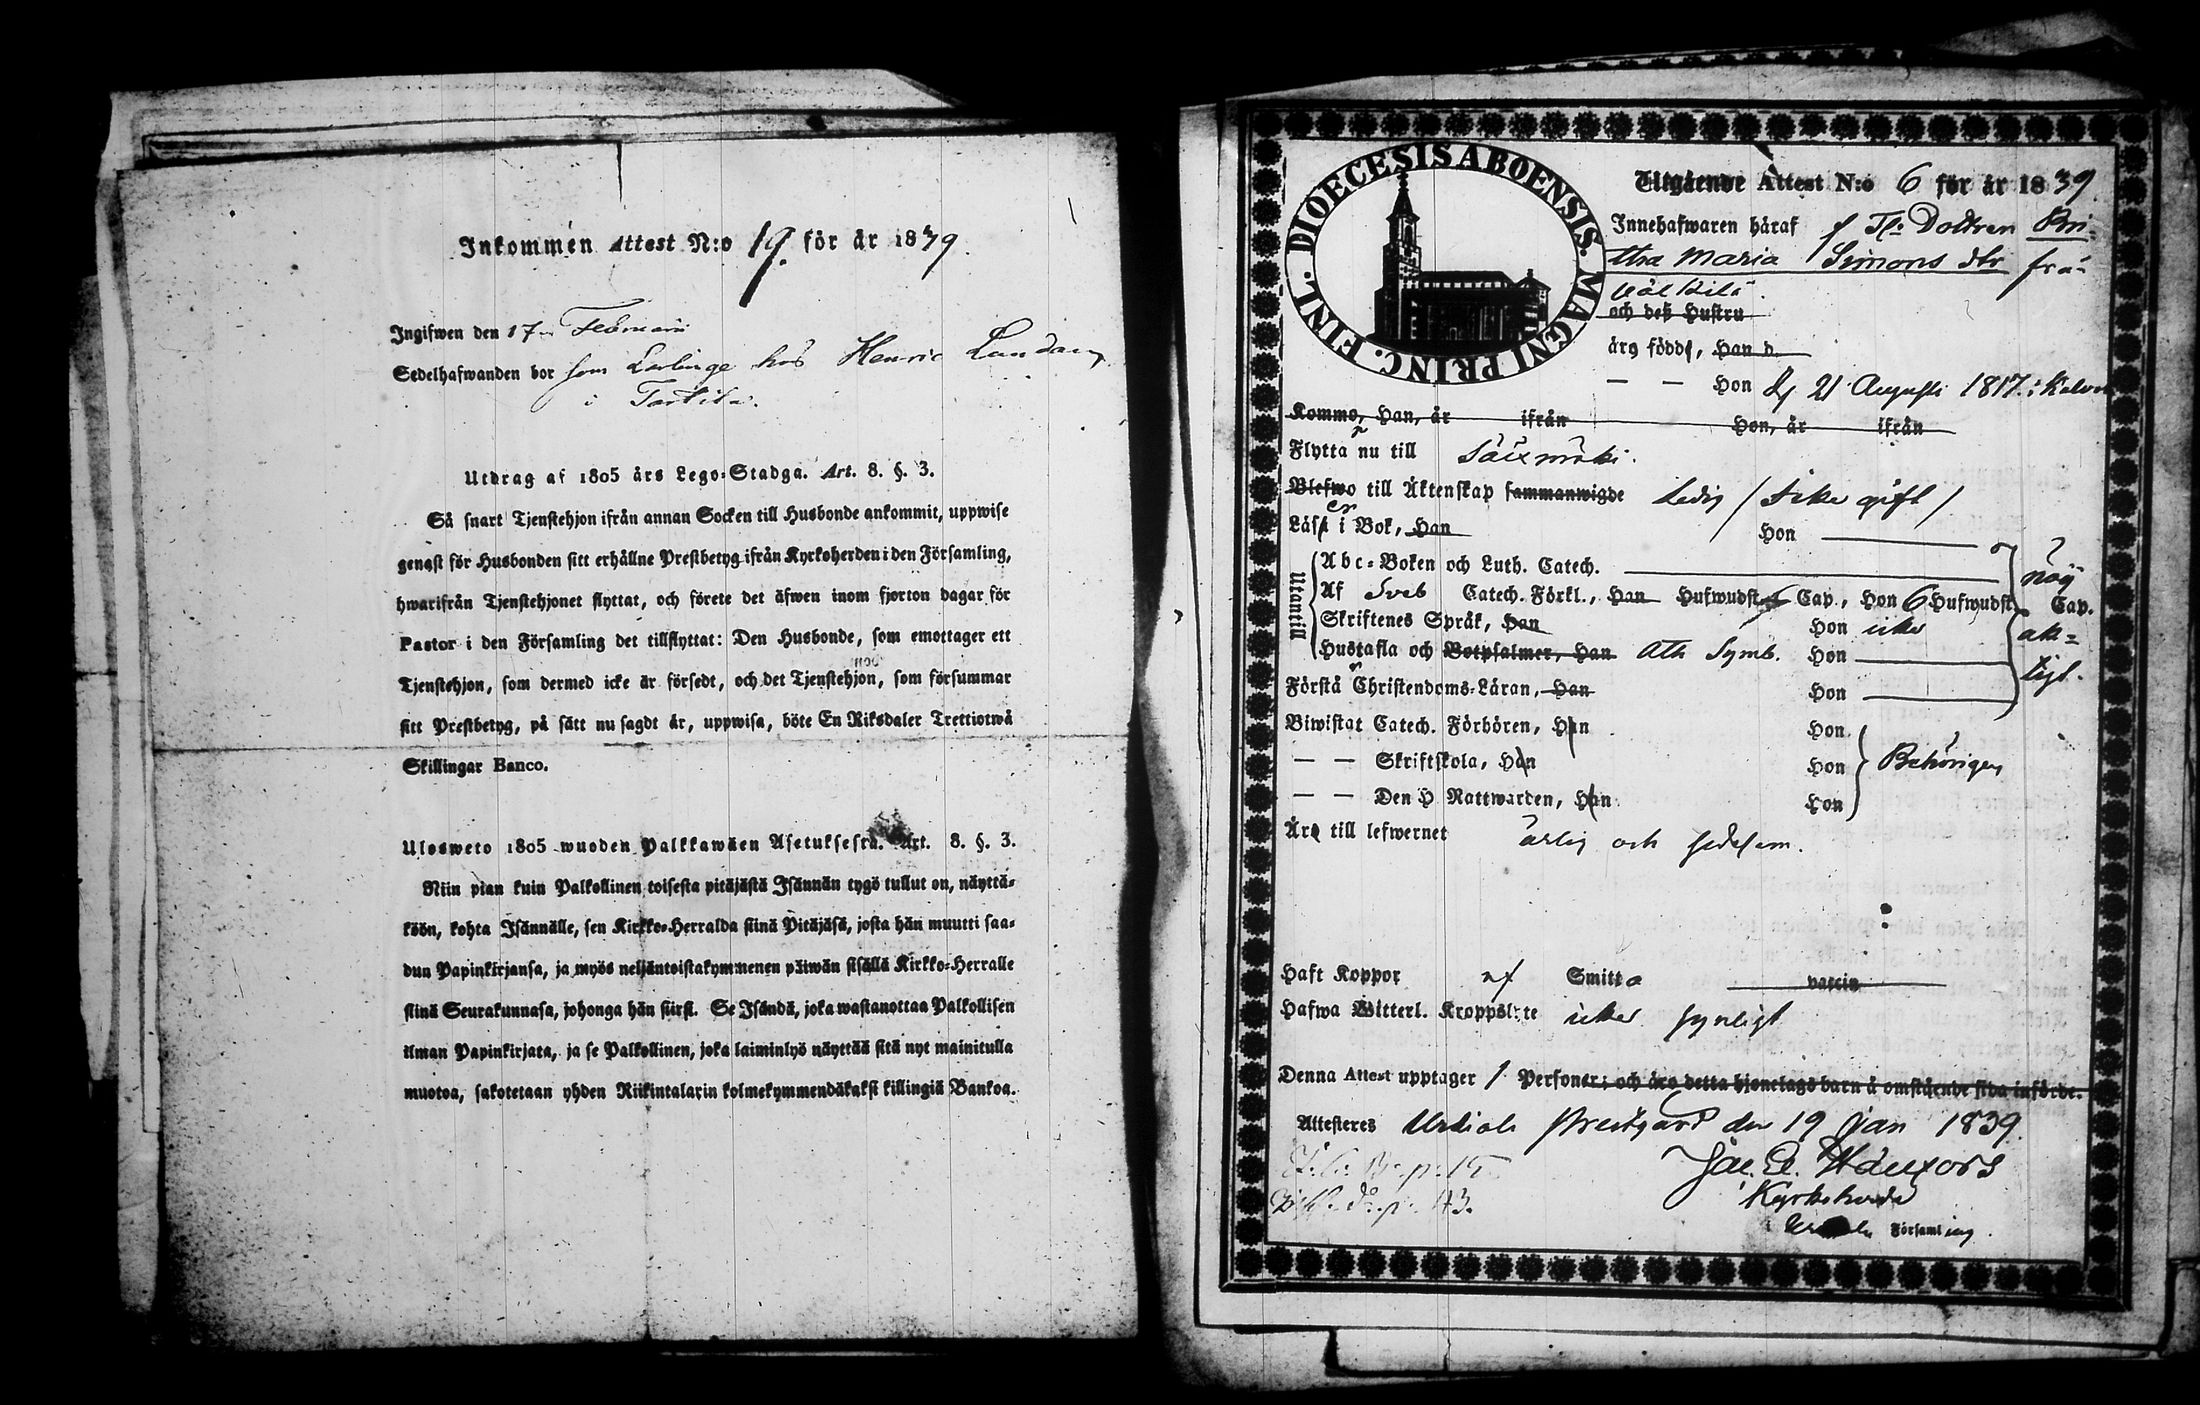 Inkommen Attest N:o 19. för år 1839.
Ingifwen den 17 Februarii
Sedelhafwanden bor som hos Henric
i
Utdrag af 1805 års Lego-Stadga. Art. 8. §. 3.
Så snart Tjenstehjon ifrån annan Socken till Husbonde ankommit, uppwise
genast för Husbonden sitt erhållne Prestbetyg ifrån Kyrkoherden i den Församling,
hwarifrån Tjenstehjonet flyttat, och förete det äfwen inom fjorton dagar för
Pastor i den Församling det tillflyttat: Den Husbonde, som emottager ett
Tjenstehjon, som dermed icke är försedt, och det Tjenstehjon, som försummar
sitt Prestbetyg, på sätt nu sagdt är, uppwisa, böte En Riksdaler Trettiotwå
Skillingar Banco.
Ulosweto 1805 wuoden Palkkawäen Asetuksesta. Art. 8. §. 3.
Niin pian kuin Palkollinen toisesta pitäjästä Isännän tygö tullut on, näyttä-
köön, kohta Isännälle, sen Kirkko-Herralda siinä Pitäjäsä, josta hän muutti saa-
dun Papinkirjansa, ja myös neljäntoistakymmenen päiwän sisällä Kirkko-Herralle
siinä Seurakunnasa, johonga hän siirsi. Se Isändä, joka wastanottaa Palkollisen
ilman Papinkirjata, ja se Palkollinen, joka laiminlyö näyttää sitä nyt mainitulla
muotoa, sakotetaan yhden Riikintalarin kolmekymmendäkaksi killingiä Bankoa.
DIOECESIS ABOENSIS. MAGNI PRINC. FINL.
Utgående Attest N:o 6 för år 1839.
Innehafwaren häraf Dottren Bri-
tha Maria Simons dtr frå-
och deß Hustru
äro född, Han d.
— — Hon d 21 Augusti 1817. i
Kommo, Han, år ifrån Hon, år ifrån
Flyttar nu till Sääxmäki.
Blefwo till Äktenskap sammanwigde Ledig / icke gift /
Läser i Bok, Han Hon
Utantill
Abc-Boken och Luth. Catech. nöj
Af Sveb Catech. Förkl., Han Hufwudst. Cap., Hon 6 Hufwudst. Cap.
Skriftenes Språk, Han Hon icke ak-
Hustafla och Botpsalmer, Han Ath Symb. Hon tigt.
Förstår Christendoms-Läran, Han Hon
Biwistat Catech. Förhören, Han Hon
— — Skriftskola, Han Hon Behörigen
— — Den H Nattwarden, Han Hon
Äro till lefwernet ärlig och sedesam.
Haft Koppor af Smitto vaccin
Hafwa Witterl. Kroppslyte icke synligt
Denna Attest upptager 1 Personer; och äro detta hjonelags barn å omstående sida införde.
Attesteres Urdiala Prestgård den 19 Jan 1839.
Kyrkoherde
i Församling